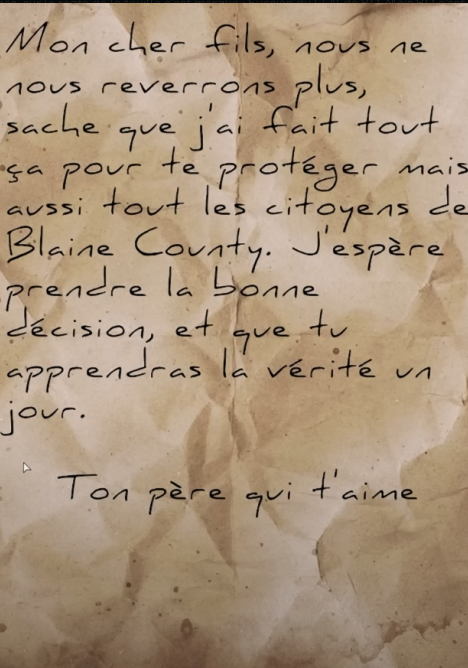 Mon cher fils, nous ne
nous reverrons plus,
sache que j'ai fait tout
ça pour te protéger mais
aussi tout les citoyens de
Blaine County. J'espère
prendre la bonne
décision, et que tu
apprendras la vérité un
jour.
Ton père qui t'aime